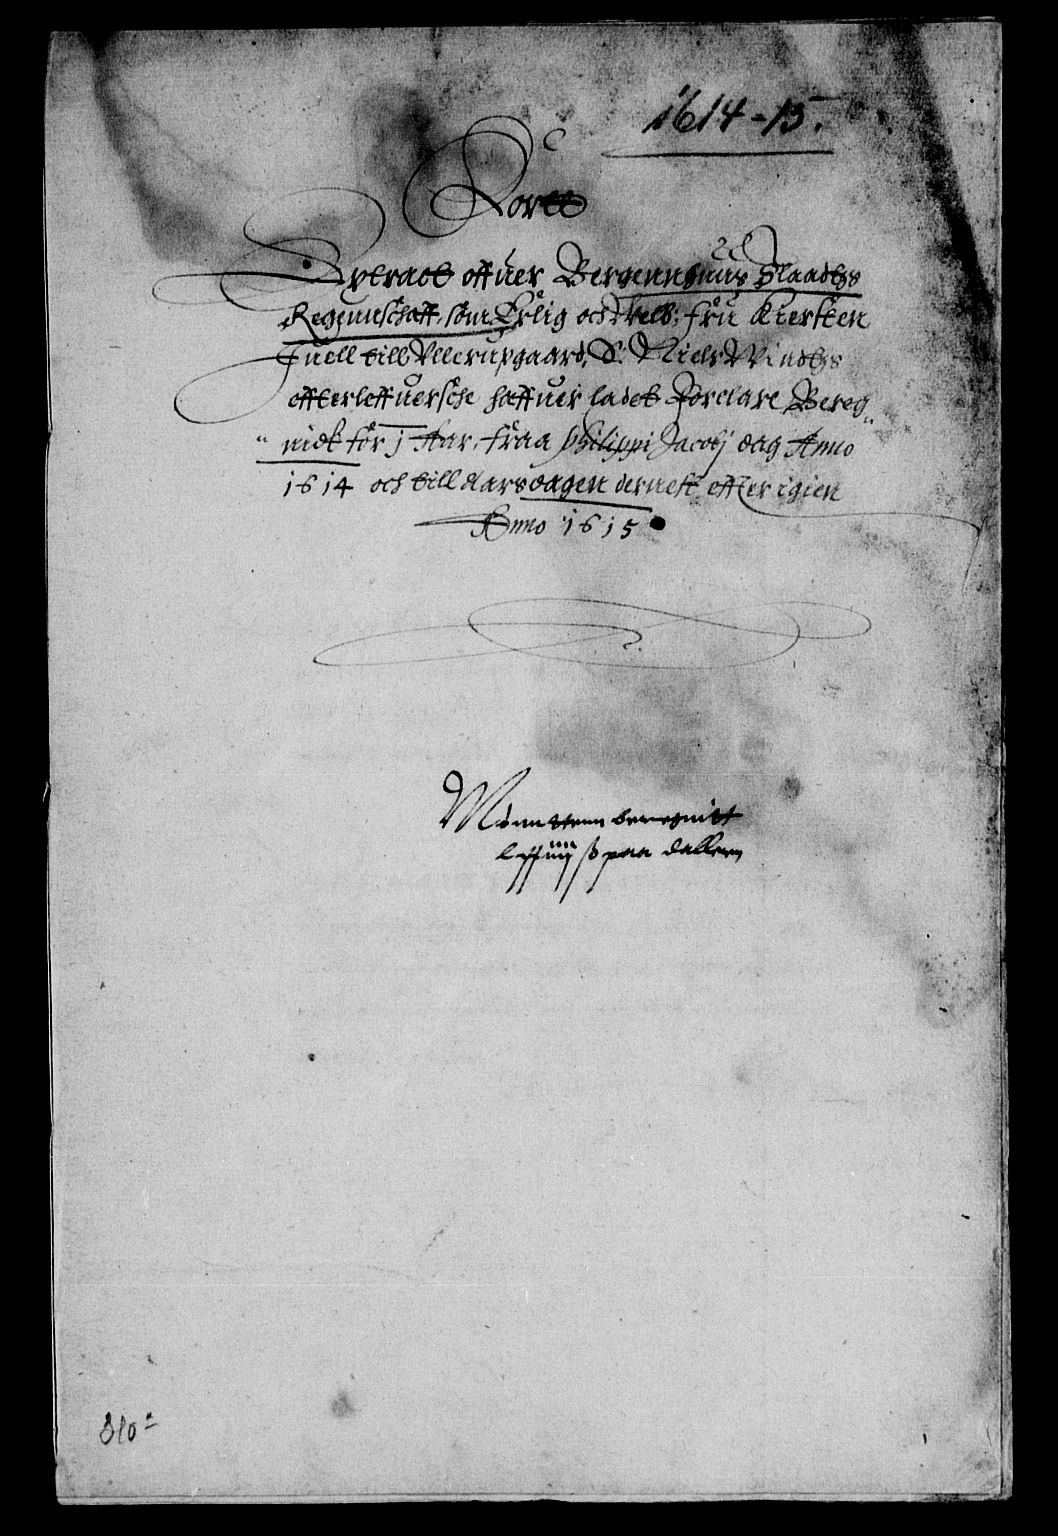 1614-15.
Kortt
Extract offuer Bergennhuus Slaadtz
Regennschaff, som Erlig och Velb: fru Kiersten
Juell till Vllerupgaard, S. Niels Windtz
effterleffuersche haffuer ladet Forclare Bereg„
„nidt för j Aar, fraa Philippi Jacobj dag Anno
1614 och till Aarsdagen dernest effter igien
Anno 1615
Mønntenn beregnitt
iiij ß paa dallern